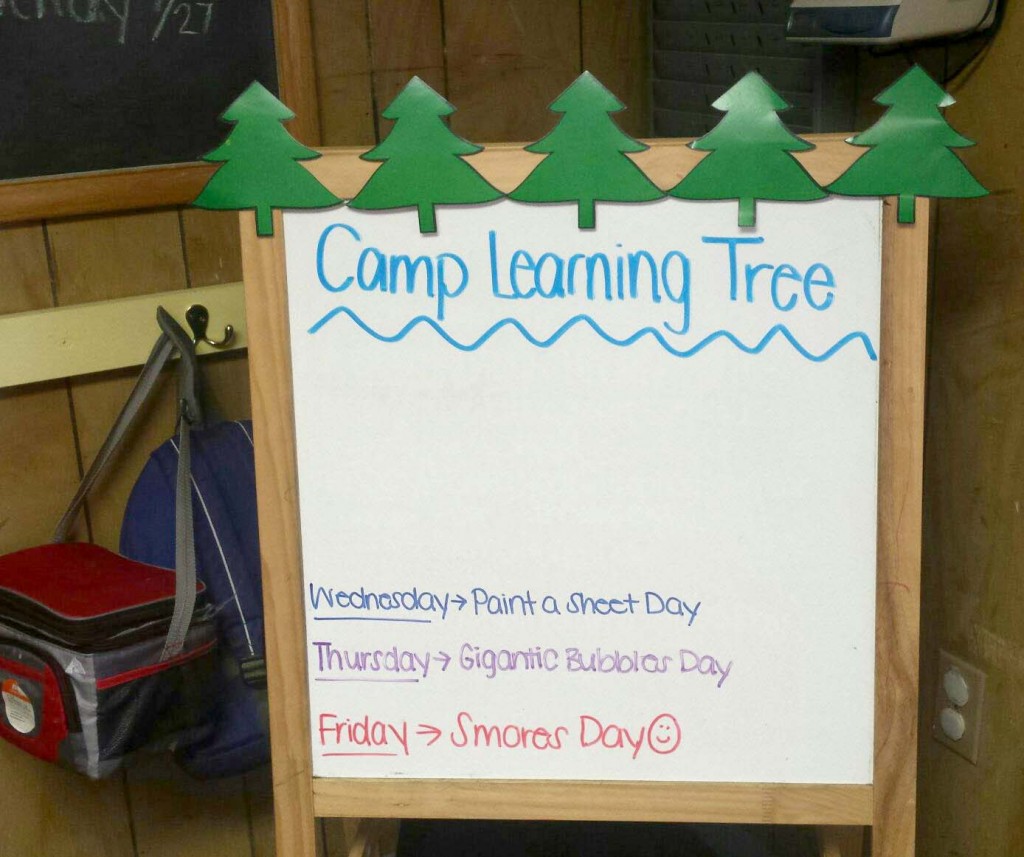 7/27
Camp Learning Tree
Wednesday → Paint a Sheet Day
Thursday → Gigantic Bubbles Day
Friday → Smores Day ☺